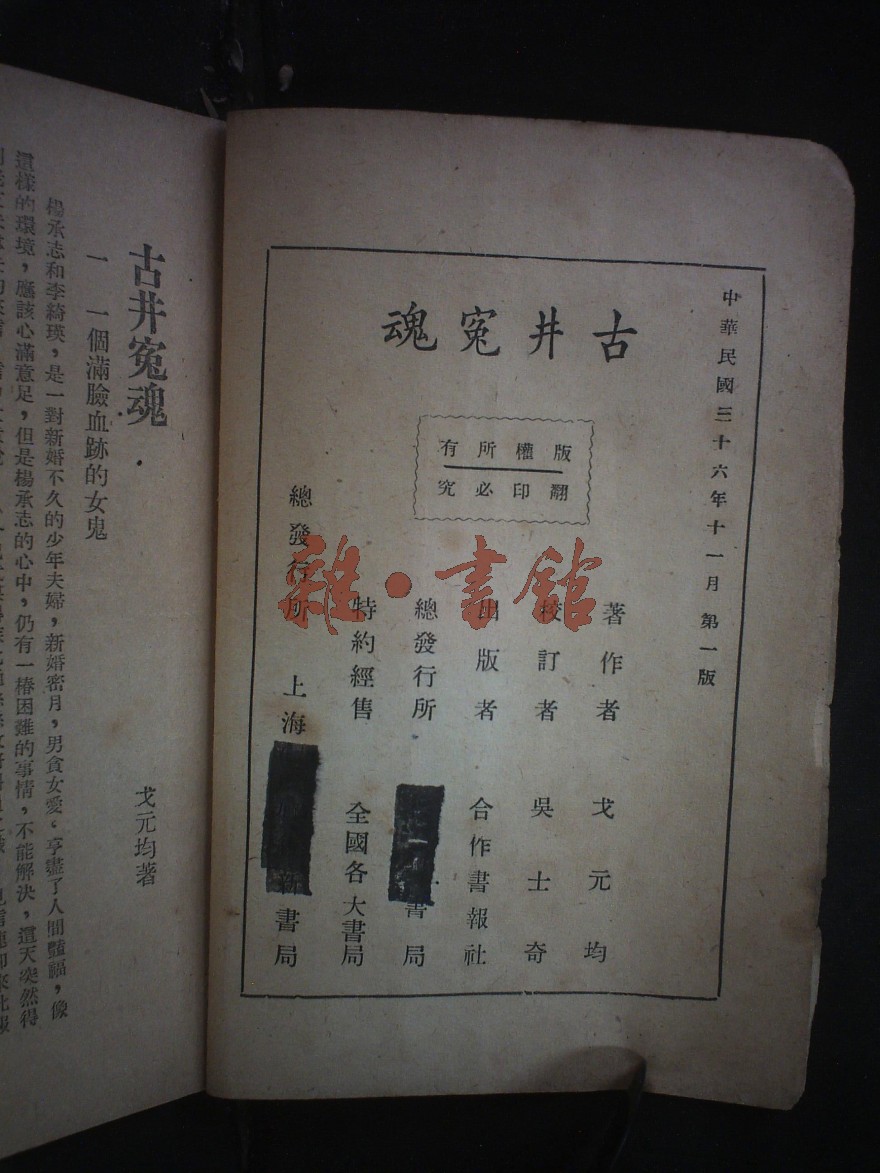 中華民國三十六年十一月 第一版
古井冤魂
版權所有
翻印必究
著作者 戈元均
校訂者 吳士奇
出版者 合作書報社
總發行所 書局
特約經售 全國各大書局
總發行所 上海 新書局
雜·書館
古井冤魂
戈元均著
一 一個滿臉血跡的女鬼
楊承志和李綺瑛,是一對新婚不久的少年夫婦,新婚密月,男貪女愛,享盡了人間豔福,像
這樣的環境,應該心滿意足,但是楊承志的心中,仍有一樁困難的事情,不能解決,這天突然得